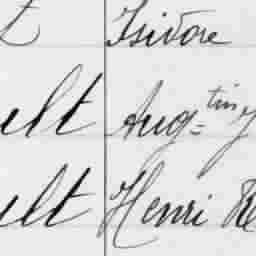 t Isidore
ult Aug=tin
ult Henri